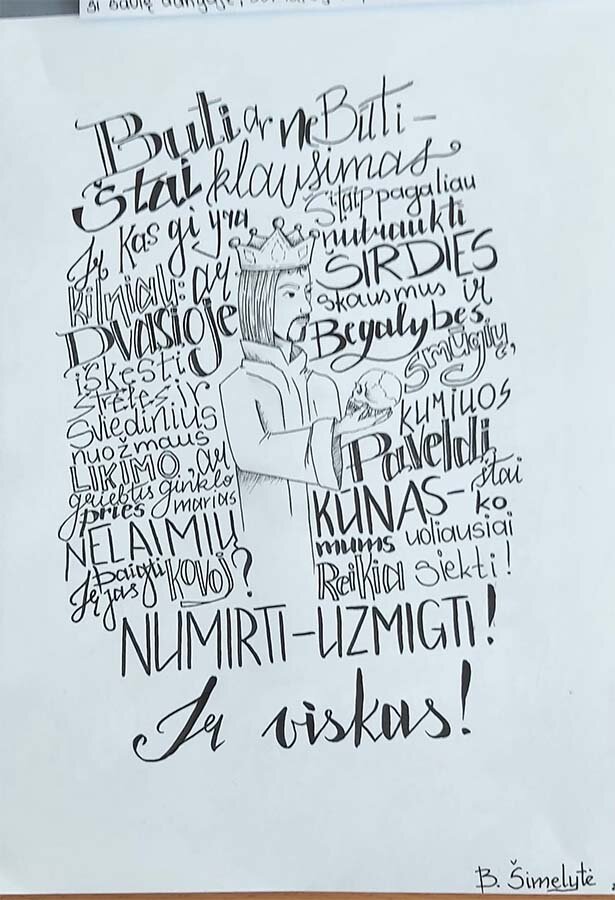 Būti ar ne Būti –
Štai klausimas
Ir Kas gi yra
kilniau: ar
Dvasioje
iškęsti
strėles ir
Sviedinius
nuožmaus
LIKIMO, ar
griebtis ginklo
prieš marias
NELAIMIŲ
baigti
Ir jas kovoj?
Šitaip pagaliau
nutraukti
ŠIRDIES
skausmus ir
Begalybes
smūgių,
kuriuos
Paveldi
štai
KŪNAS–
ko
mums uoliausiai
Reikia siekti!
NUMIRTI–UŽMIGTI!
Ir viskas!
B. Šimelytė